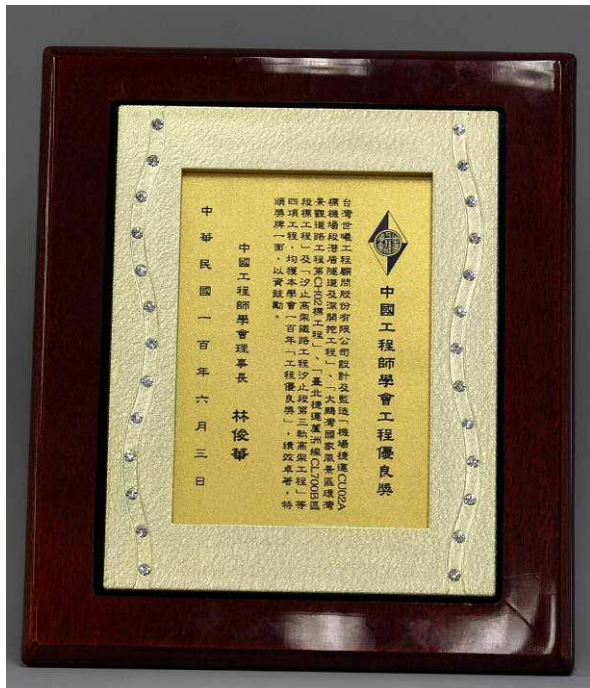 中國工程師學會工程優良獎
台灣世曦工程顧問股份有限公司設計及監造「機場捷運CU02A
標機場段潛盾隧道及深開挖工程」、「大鵬灣國家風景區環灣
景觀道路工程第CH02標工程」、「臺北捷運蘆洲線CL700B區
段標工程」及「汐止高架鐵路工程汐止段第三軌高架工程」等
四項工程，均獲本學會一百年「工程優良獎」，績效卓著，特
頒獎牌一面，以資鼓勵。
中國工程師學會理事長 林俊華
中華民國一百年六月三日